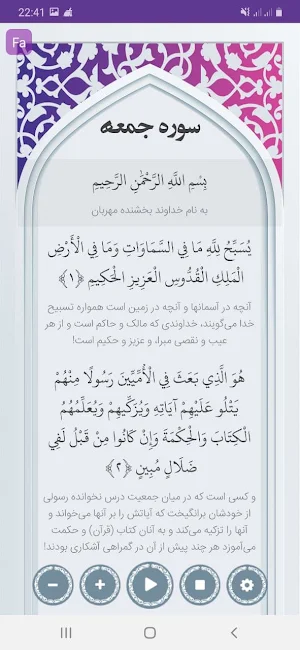 22:41
Fa
سوره جمعه
بِسْمِ اللَّهِ الرَّحْمَٰنِ الرَّحِيمِ
به نام خداوند بخشنده مهربان
يُسَبِّحُ لِلَّهِ مَا فِي السَّمَاوَاتِ وَمَا فِي الْأَرْضِ
الْمَلِكِ الْقُدُّوسِ الْعَزِيزِ الْحَكِيمِ ﴿۱﴾
آنچه در آسمانها و آنچه در زمین است همواره تسبیح
خدا می‌گویند، خداوندی که مالک و حاکم است و از هر
عیب و نقصی مبرا، و عزیز و حکیم است!
هُوَ الَّذِي بَعَثَ فِي الْأُمِّيِّينَ رَسُولًا مِنْهُمْ
يَتْلُو عَلَيْهِمْ آيَاتِهِ وَيُزَكِّيهِمْ وَيُعَلِّمُهُمُ
الْكِتَابَ وَالْحِكْمَةَ وَإِنْ كَانُوا مِنْ قَبْلُ لَفِي
ضَلَالٍ مُبِينٍ ﴿۲﴾
و کسی است که در میان جمعیت درس نخوانده رسولی
از خودشان برانگیخت که آیاتش را بر آنها می‌خواند و
آنها را تزکیه می‌کند و به آنان کتاب (قرآن) و حکمت
می‌آموزد هر چند پیش از آن در گمراهی آشکاری بودند!